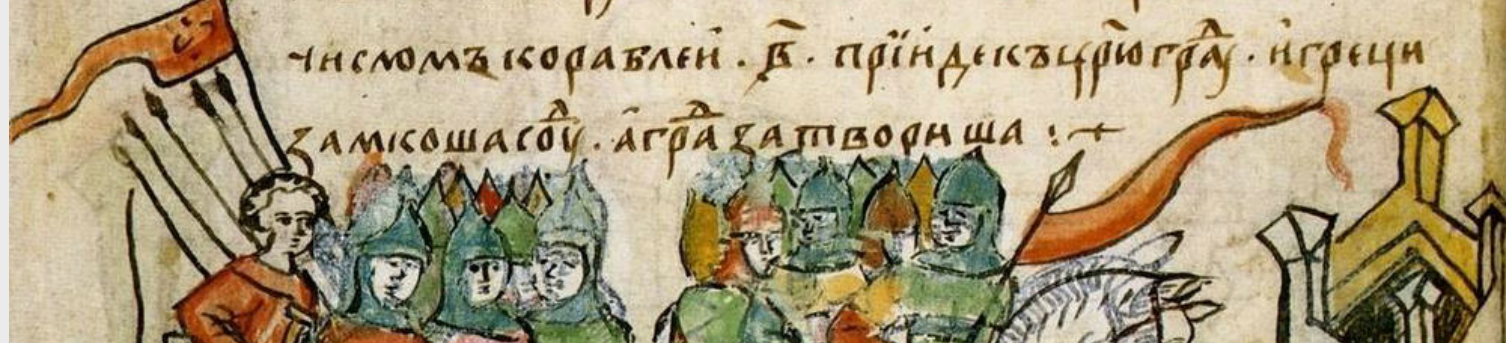 числомъ кораблеи . в҃ . прїиде къ црⷭ҇юграⷣу . и греци
замкоша соуⷣ . а граⷣ затвориша :~